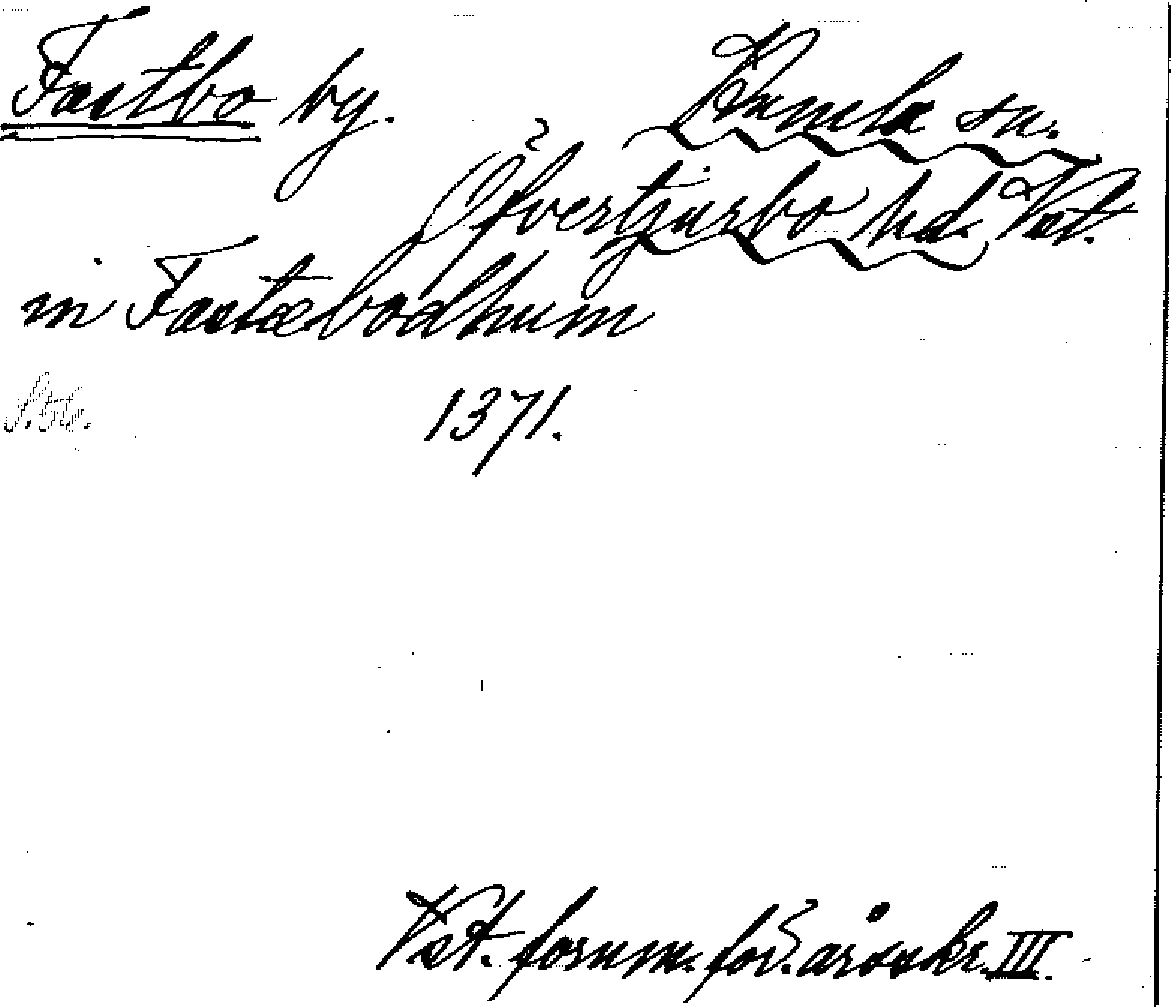 Fastbo by. Kumla sn.
Öfvertjurbo hd. Vst.
in Fastæbodhum
1371.
Vst. fornm. för. årsskr. III.